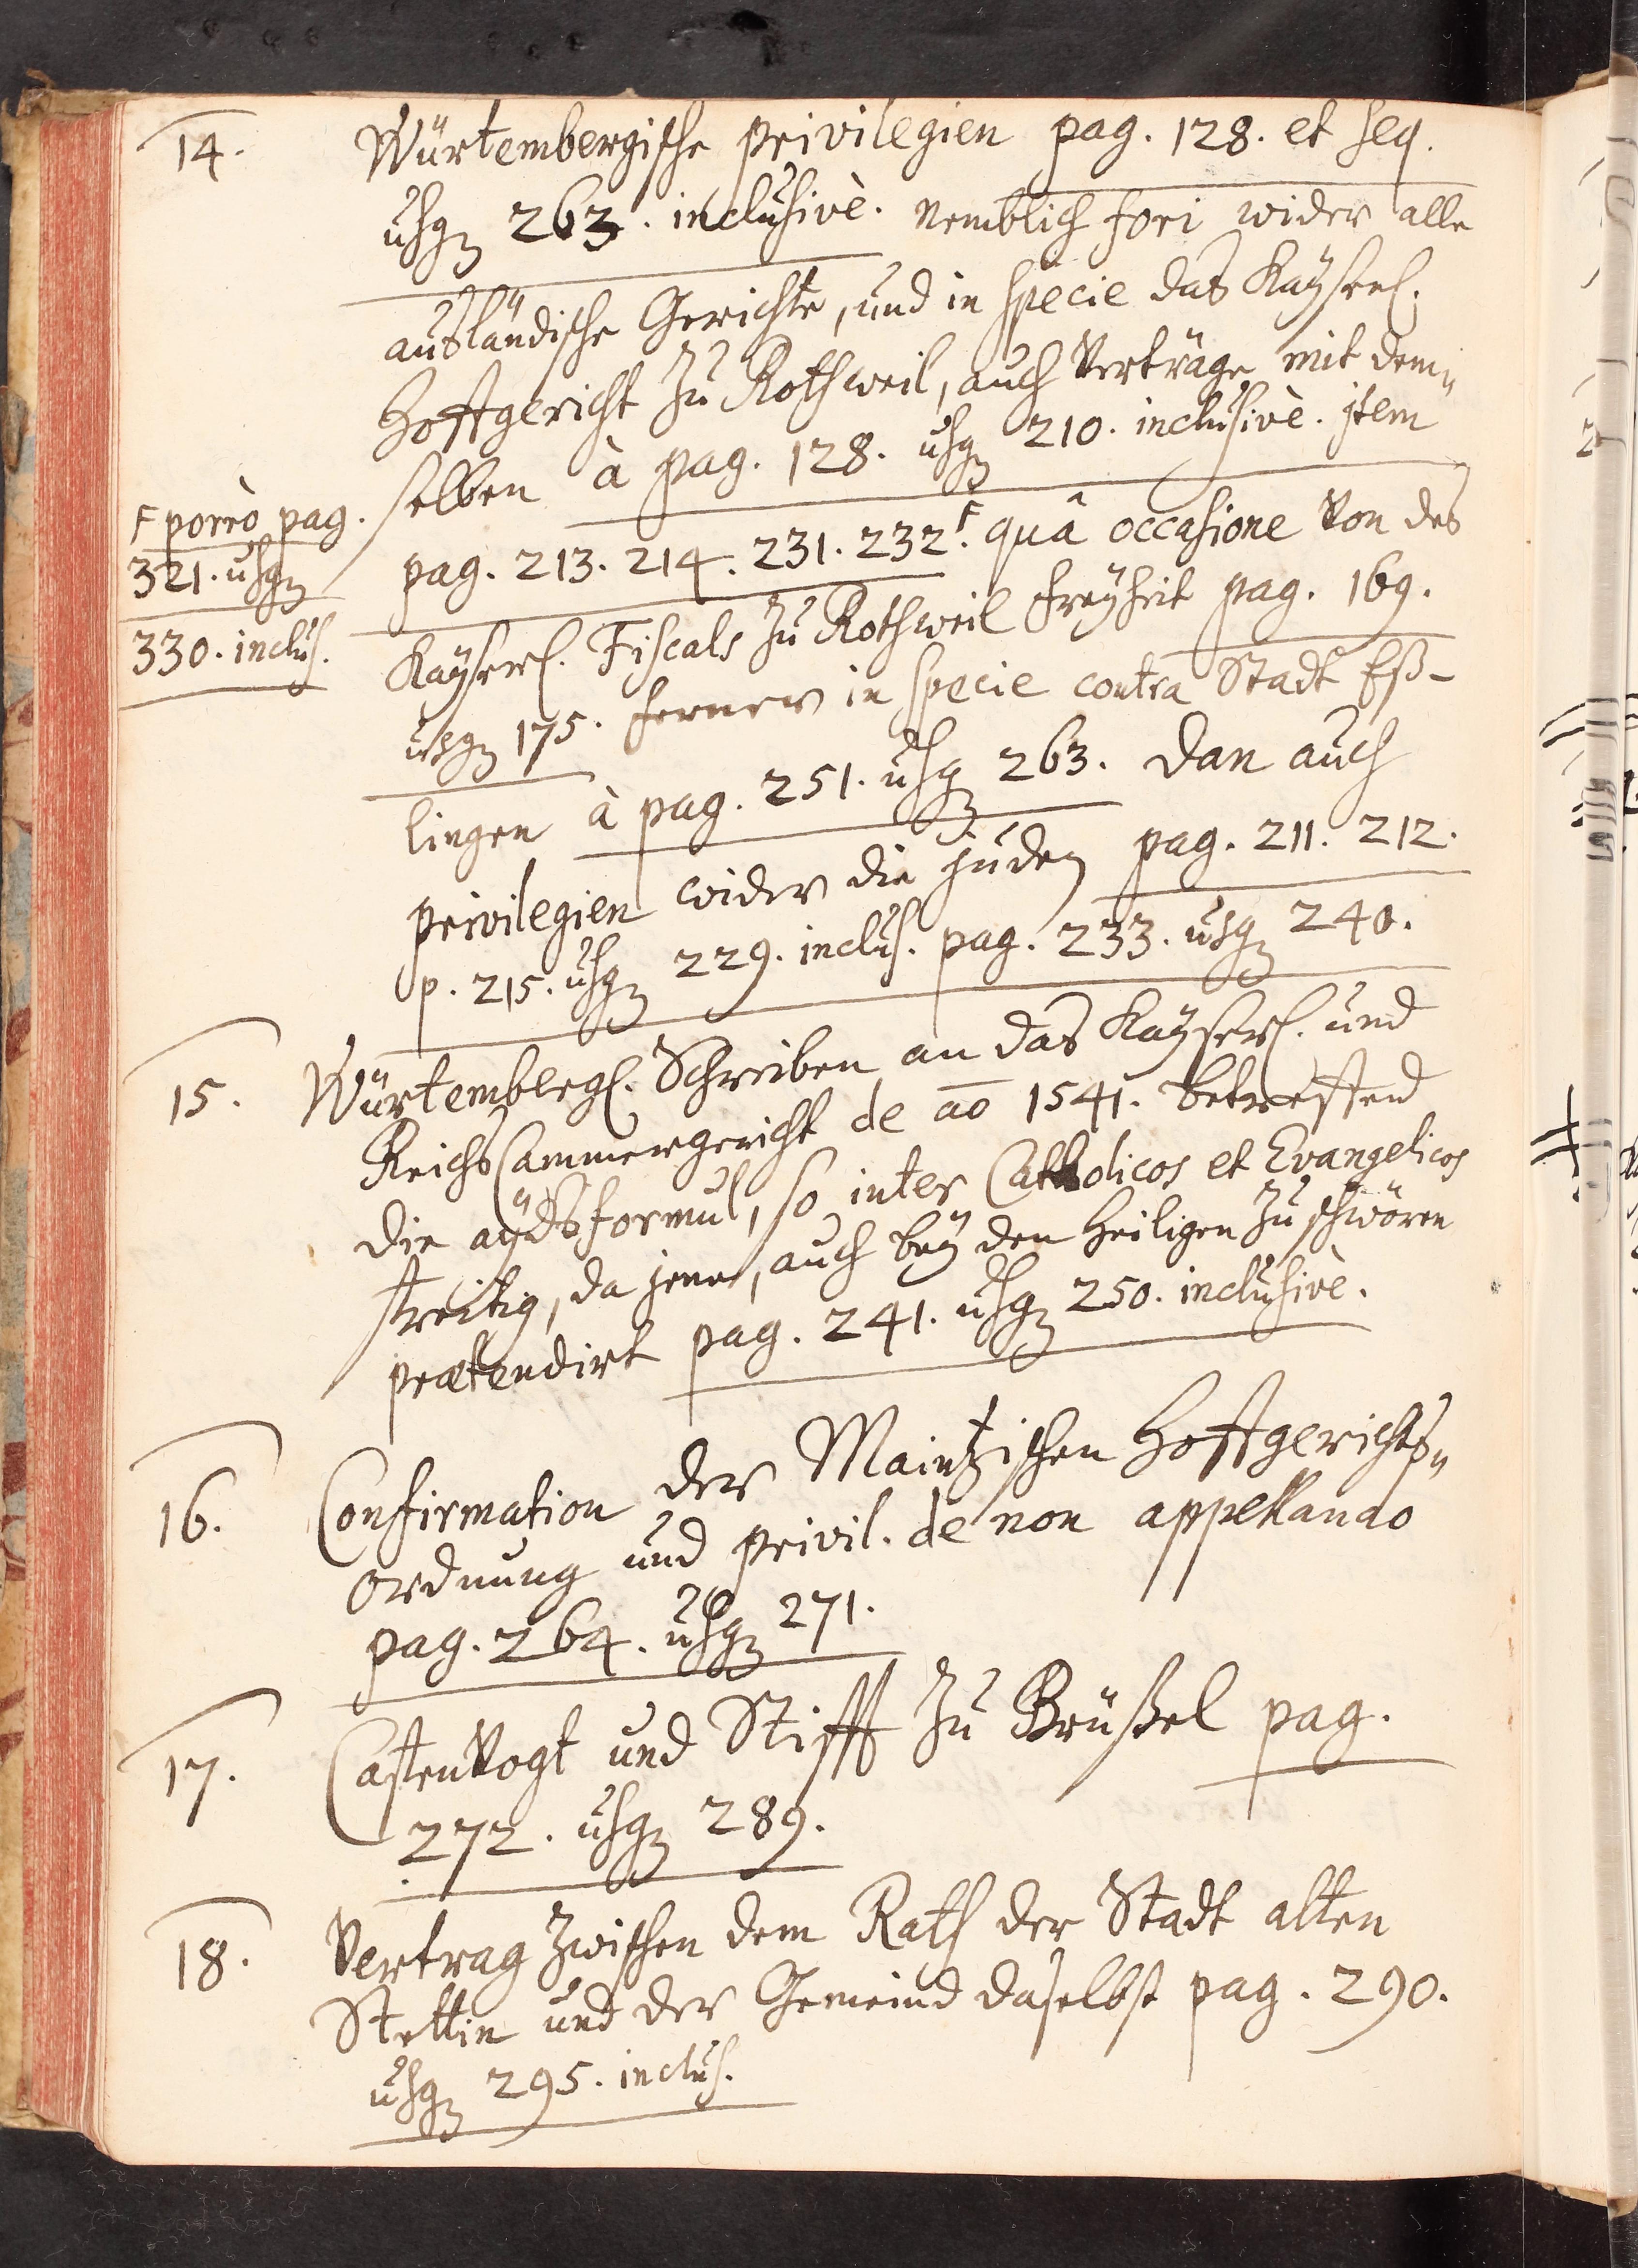 14. Würtembergische privilegien pag. 128. et seq.
usq 263. inclusivè. nemblich fori wider alle
ausländische Gerichte, und in specie das Kayserl.
Hoffgericht zu Rothweil, auch Verträge mit dem„
selben à pag. 128. usq 210. inclusivè. jtem
pag. 213. 214. 231. 232.F quâ occasione Von des
F porrò pag.
321. usq
330. inclus.
Kayserl. Fiscals zu Rothweil freyheit pag. 169.
usq 175. ferner in specie contra Stadt Eß-
lingen à pag. 251. usq 263. dan auch
privilegien wider die juden pag. 211. 212.
p. 215. usq 229. inclus. pag. 233. usq 240.
15. Würtembergl. Schreiben an das Kayserl. und
Reichs Cammergericht de ao 1541. betreffend
die aydsformul, so inter Catholicos et Evangelicos
streitig, da jene, auch bey den Heiligen zu schwören
prætendirt pag. 241. usq 250. inclusivè.
16. Confirmation der Maintzischen Hoffgerichts„
ordnung und privil. de non appellando
pag. 264. usq 271.
17. CastenVogt und Stifft zu Brüßel pag.
272. usq 289.
18. Vertrag zwischen dem Rath der Stadt alten
Stettin und der Gemeind daselbst pag. 290.
usq 295. inclus.